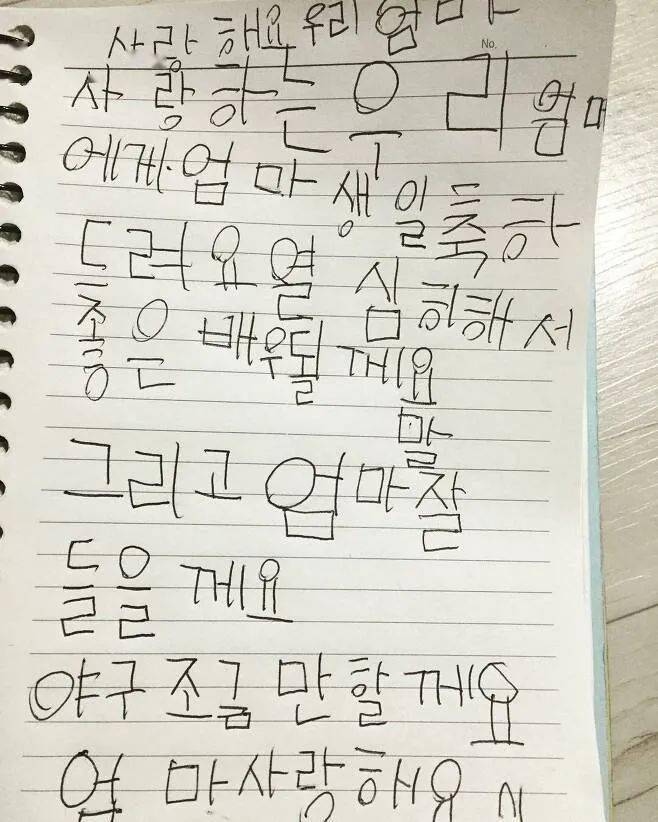 사랑해요 우리 엄마
No.
사랑하는 우리 엄마
에게. 엄마 생일축하
드려요 열심히해서
좋은 배우될께요
말
그리고 엄마잘
들을께요
야구조금만할께요
엄마사랑해요